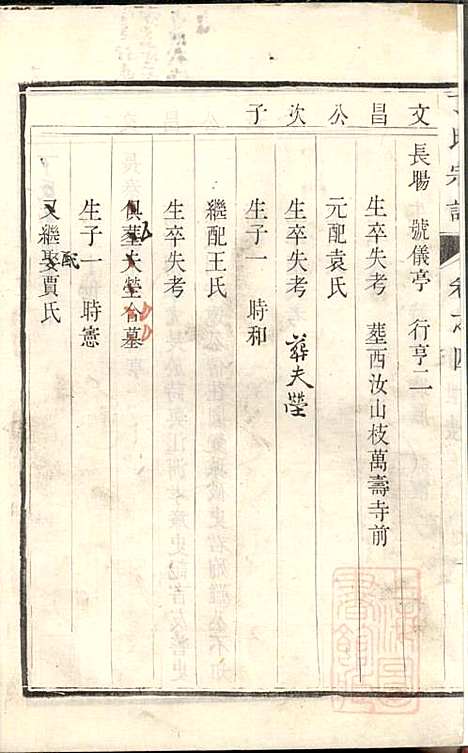 文昌公次子
長暘 號儀亭 行亨二
生卒失考 塟西汝山枝萬壽寺前
元配袁氏
生卒失考 葬夫塋
生子一 時和
繼配王氏
生卒失考
俱塟夫塋合墓
生子一 時憲
又繼娶賈氏
配
氏宗譜 卷之四